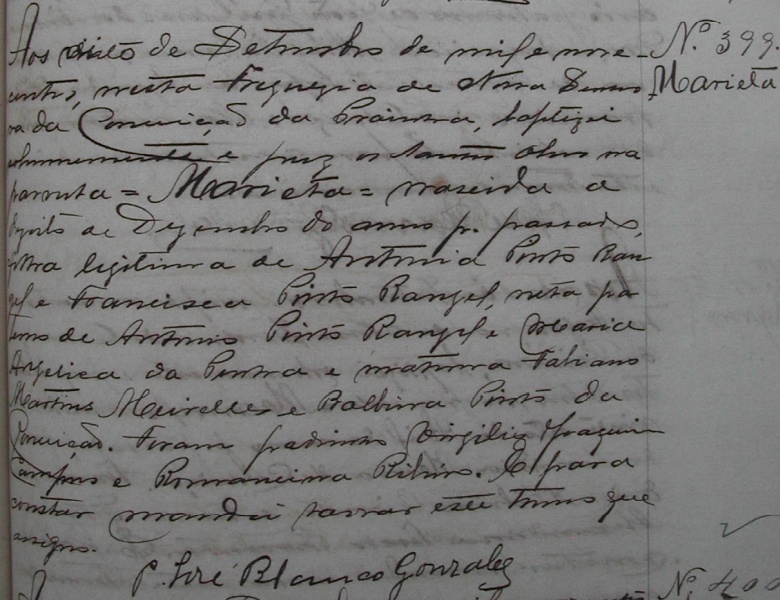 Aos oito de Setembro de mil e nove- Nº 399.
centos, nesta Freguezia de Nossa Senho- Marieta
ra da Conceição da                , baptizei
solemnemente e puz os santos oleos na
parvula = Marieta = nascida a
dezoito de Dezembro do anno p. passado,
filha legitima de Antonio Pinto Ran
gel e Francisca Pinto Rangel, neta pa
terna de Antonio Pinto Rangel e Maria
Angelica da            e materna Fabiano
Martins Meirelles e Balbina Pinto da
Conceição. Foram padrinhos Virgilio Joaquim
Campos e Romanceina Ribeiro. E para
constar mandei lavrar este termo que
assigno.
P. José Blanco Gonzalez
Nº 400